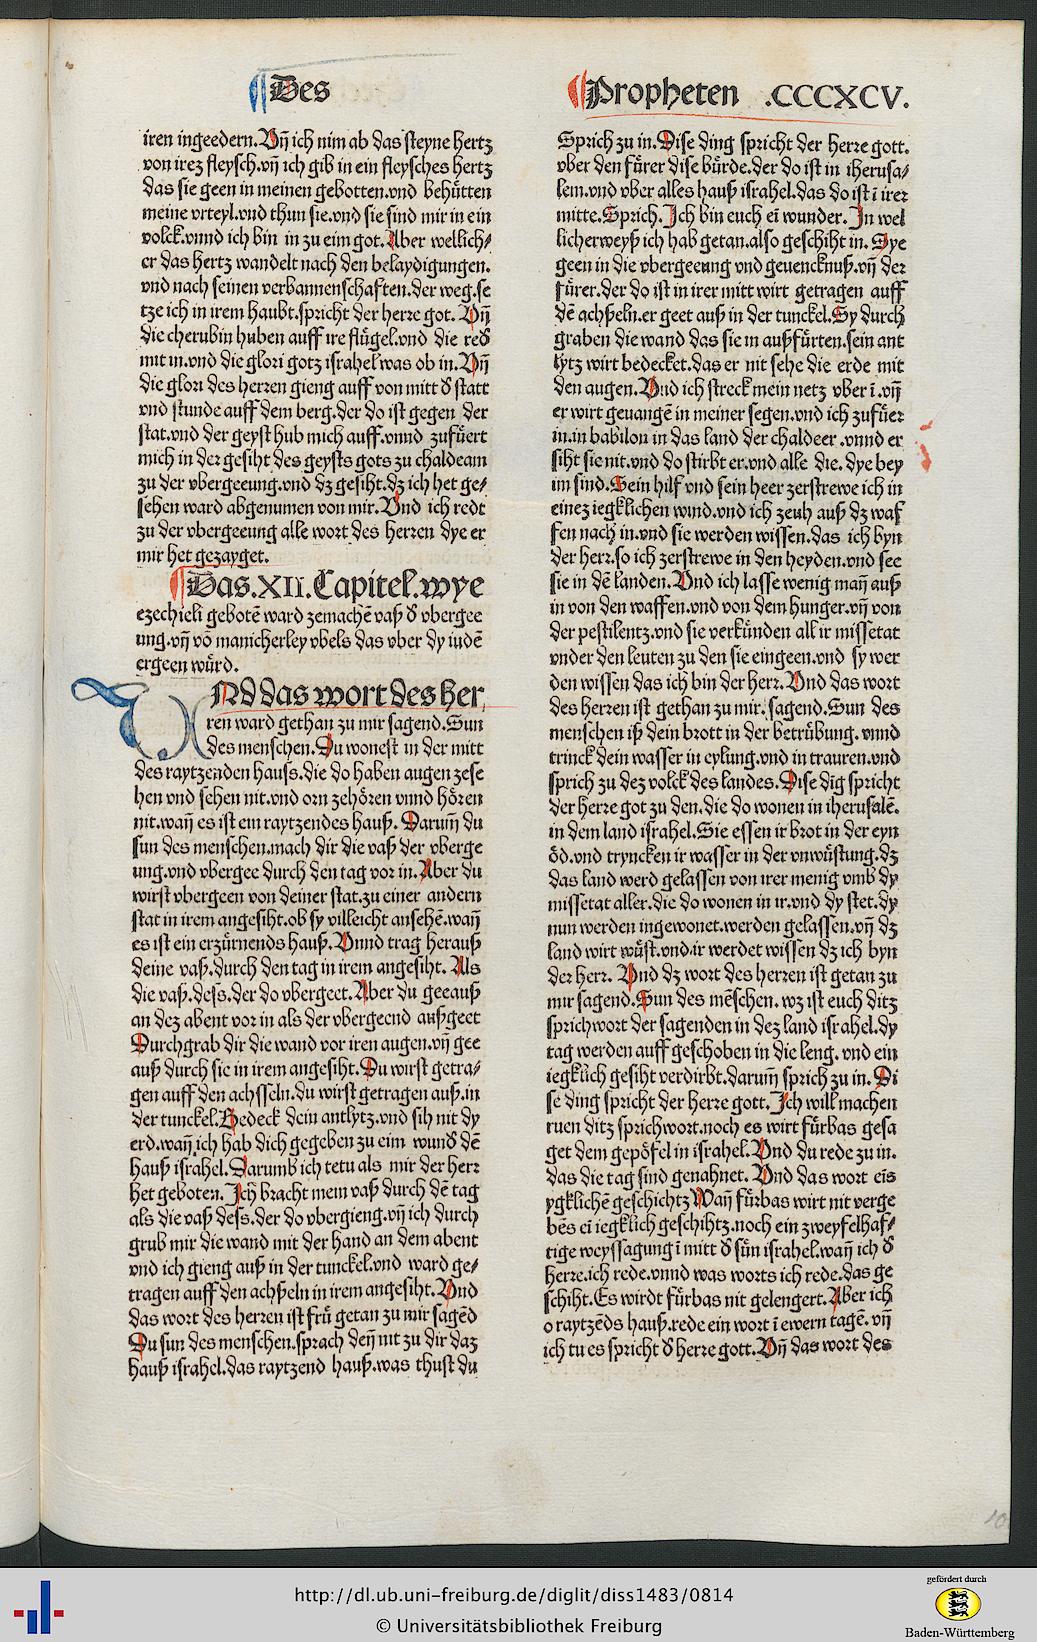 Des
Propheten .CCCXCV.
iren ingeedern. Vn̄ ich nim ab das steyne hertz
von irez fleysch.vn̄ ich gib in ein fleysches hertz
das sie geen in meinen gebotten.vnd behůtten
meine vrteyl.vnd thun sie.vnd sie sind mir in ein
volck.vnnd ich bin in zu eim got. Aber wellich⸗
er das hertz wandelt nach den belaydigungen.
vnd nach seinen verbannenschaften.der weg.se
tze ich in irem haubt.spricht der herre got. Vn̄
die cherubin huben auff ire flůgel.vnd die red̕
mit in.vnd die glori gotz israhel was ob in. Vn̄
die glori des herren gieng auff von mitt d̕ statt
vnd stunde auff dem berg.der do ist gegen der
stat.vnd der geyst hub mich auff.vnnd zufůert
mich in der gesiht des geysts gots zu chaldeam
zu der vbergeeung.vnd dz gesiht.dz ich het ge⸗
sehen ward abgenumen von mir. Vnd ich redt
zu der vbergeeung alle wort des herren dye er
mir het gezayget.
Das.XII.Capitel.wye
ezechieli gebotē ward zemachē vaß d̕ vbergee
ung.vn̄ vō manicherley vbels das vber dy iudē
ergeen wůrd.
VNd das wort des her
ren ward gethan zu mir sagend.Sun
des menschen.Du wonest in der mitt
des raytzenden hauss.die do haben augen zese
hen vnd sehen nit.vnd orn zehören vnnd hören
nit.wan̄ es ist ein raytzendes hauß. Darum̄ du
sun des menschen.mach dir die vaß der vberge
ung.vnd vbergee durch den tag vor in. Aber du
wirst vbergeen von deiner stat.zu einer andern
stat in irem angesiht.ob sy villeicht ansehē.wan̄
es ist ein erzůrnends hauß. Vnnd trag herauß
deine vaß.durch den tag in irem angesiht. Als
die vaß.dess.der do vbergeet.Aber du gee auß
an dez abent vor in als der vbergeend außgeet
Durchgrab dir die wand vor iren augen.vn̄ gee
auß durch sie in irem angesiht.Du wirst getra⸗
gen auff den achsseln.du wirst getragen auß.in
der tunckel.Bedeck dein antlytz.vnd sih nit dy
erd.wan̄ ich hab dich gegeben zu eim wund̕ dē
hauß israhel. Darumb ich tetu als mir der herr
het geboten. Ich bracht mein vaß durch dē tag
als die vaß dess.der do vbergieng.vn̄ ich durch
grub mir die wand mit der hand an dem abent
vnd ich gieng auß in der tunckel.vnd ward ge⸗
tragen auff den achßeln in irem angesiht. Vnd
das wort des herren ist frů getan zu mir sagēd
Du sun des menschen.sprach den̄ nit zu dir daz
hauß israhel.das raytzend hauß.was thust du
Sprich zu in.Dise ding spricht der herre gott.
vber den fůrer dise bůrde.der do ist in iherusa⸗
lem.vnd vber alles hauß israhel.das do ist ī irer
mitte.Sprich.Ich bin euch eī wunder. In wel
licherweyß ich hab getan.also geschiht in. Sye
geen in die vbergeeung vnd geuencknuß.vn̄ der
fůrer.der do ist in irer mitt wirt getragen auff
dē achßeln.er geet auß in der tunckel.Sy durch
graben die wand das sie in außfůrten.sein ant
lytz wirt bedecket.das er nit sehe die erde mit
den augen. Vnd ich streck mein netz vber ī.vn̄
er wirt geuangē in meiner segen.vnd ich zufůer
in.in babilon in das land der chaldeer .vnnd er
siht sie nit.vnd do stirbt er.vnd alle die. dye bey
im sind.Sein hilf vnd sein heer zerstrewe ich in
einez iegklichen wind.vnd ich zeuh auß dz waf
fen nach in.vnd sie werden wissen.das ich byn
der herr.so ich zerstrewe in den heyden.vnd see
sie in dē landen. Vnd ich lasse wenig man̄ auß
in von den waffen.vnd von dem hunger.vn̄ von
der pestilentz.vnd sie verkůnden all ir missetat
vnder den leuten zu den sie eingeen.vnd sy wer
den wissen das ich bin der herr. Vnd das wort
des herren ist gethan zu mir. sagend.Sun des
menschen iß dein brott in der betrůbung. vnnd
trinck dein wasser in eylung.vnd in trauren.vnd
sprich zu dez volck des landes. Dise dīg spricht
der herre got zu den.die do wonen in iherusalē.
in dem land israhel.Sie essen ir brot in der eyn
öd.vnd tryncken ir wasser in der vnwůstung.dz
das land werd gelassen von irer menig vmb dy
missetat aller.die do wonen in ir.vnd dy stet.dy
nun werden ingewonet.werden gelassen.vn̄ dz
land wirt wůst.vnd ir werdet wissen dz ich byn
der herr. Vnd dz wort des herren ist getan zu
mir sagend.Sun des mēschen. wz ist euch ditz
sprichwort der sagenden in dez land israhel.dy
tag werden auff geschoben in die leng. vnd ein
iegklich gesiht verdirbt.darum̄ sprich zu in. Di
se ding spricht der herre gott. Ich will machen
ruen ditz sprichwort.noch es wirt fůrbas gesa
get dem gepöfel in israhel. Vnd du rede zu in.
das die tag sind genahnet. Vnd das wort eīs
ygklichē geschichtz Wan̄ fůrbas wirt nit verge
bēs eī iegklich geschihtz.noch ein zweyfelhaf⸗
tige weyssagung ī mitt d̕ sůn israhel.wan̄ ich d̕
herre.ich rede.vnnd was worts ich rede.das ge
schiht.Es wirdt fůrbas nit gelengert.Aber ich
o raytzēds hauß.rede ein wort ī ewern tagē. vn̄
ich tu es spricht d̕ herre gott. Vn̄ das wort des
10
http://dl.ub.uni-freiburg.de/diglit/diss1483/0814
© Universitätsbibliothek Freiburg
gefördert durch
Baden-Württemberg